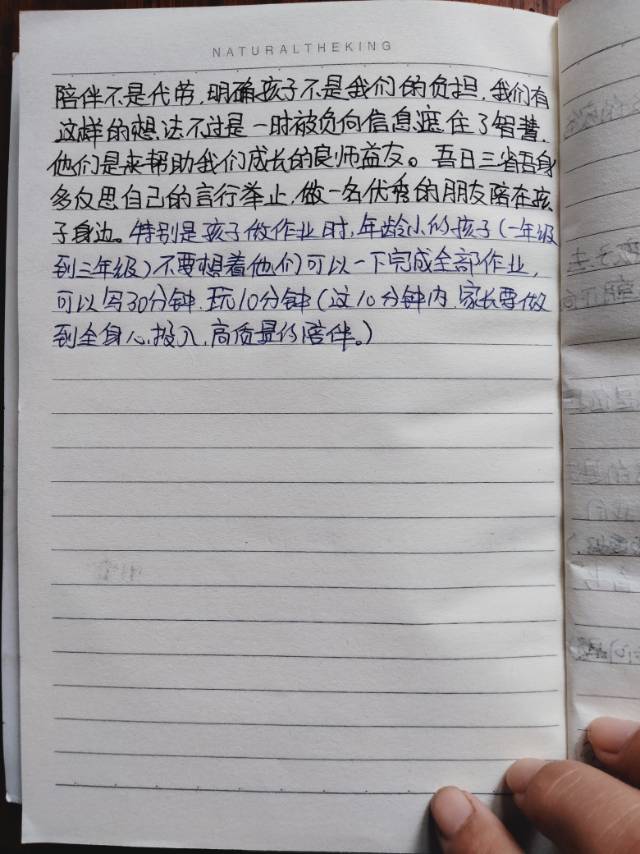 NATURALTHEKING
陪伴不是代劳,明确孩子不是我们的负担,我们有
这样的想法不过是一时被负向信息遮住了智慧,
他们是来帮助我们成长的良师益友。吾日三省吾身
多反思自己的言行举止,做一名优秀的朋友陪在孩
子身边。特别是孩子做作业时,年龄小的孩子(一年级
到三年级)不要想着他们可以一下完成全部作业,
可以写30分钟,玩10分钟(这10分钟内,家长要做
到全身心投入,高质量的陪伴。)